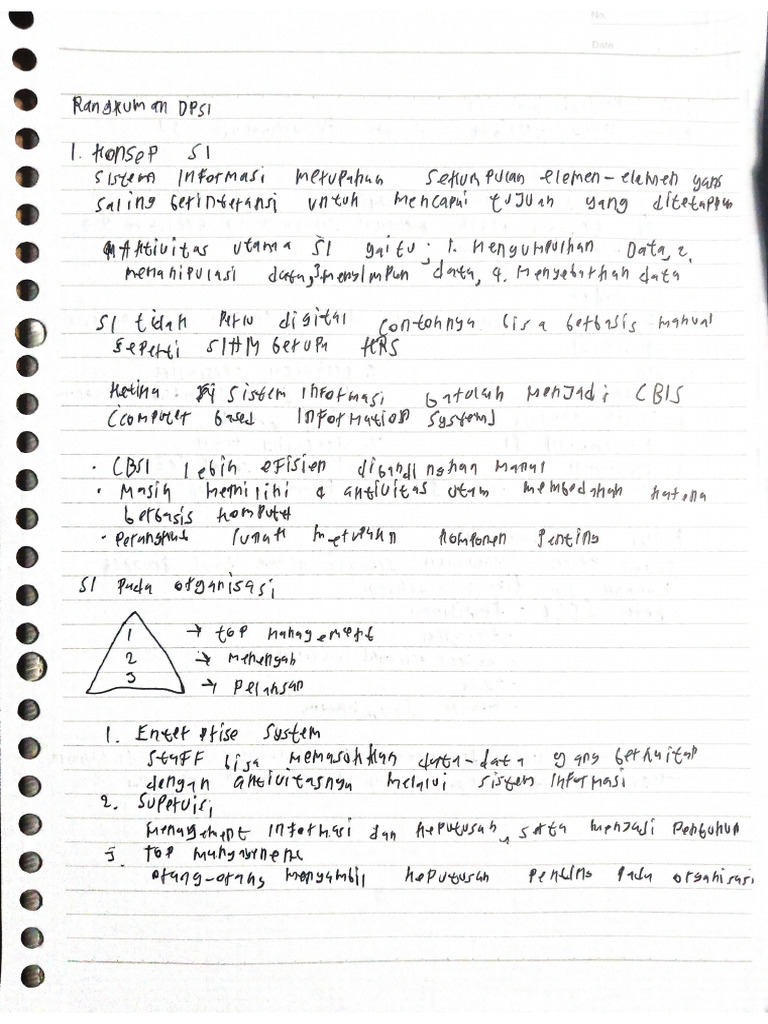 No.
Date
Rangkuman DPSI
1. Konsep SI
Sistem Informasi merupakan sekumpulan elemen-elemen yang
saling berinteraksi untuk mencapai tujuan yang ditetapkan
Aktivitas utama SI yaitu ; 1. Mengumpulkan Data, 2.
memanipulasi data, 3. menyimpan data, 4. Menyebarkan data
SI tidak perlu digital contohnya bisa berbasis manual
seperti SIAM berupa KRS
Ketika Sistem Informasi barulah menjadi CBIS
(computer based information system)
• CBSI lebih efisien dibandingkan manual
• Masih memiliki 4 aktivitas utam membedakan karena
berbasis komputer
• Perangkat lunak merupakan komponen penting
SI Pada organisasi
1 → top management
2 → menengah
3 → Pelaksan
1. Enterprise System
Staff bisa memasukkan data-data yang berkaitan
dengan aktivitasnya melalui sistem informasi
2. Supervisi
Menagement informasi dan keputusan, serta menjadi
3. Top management
orang-orang mengambil keputusan penting pada organisasi